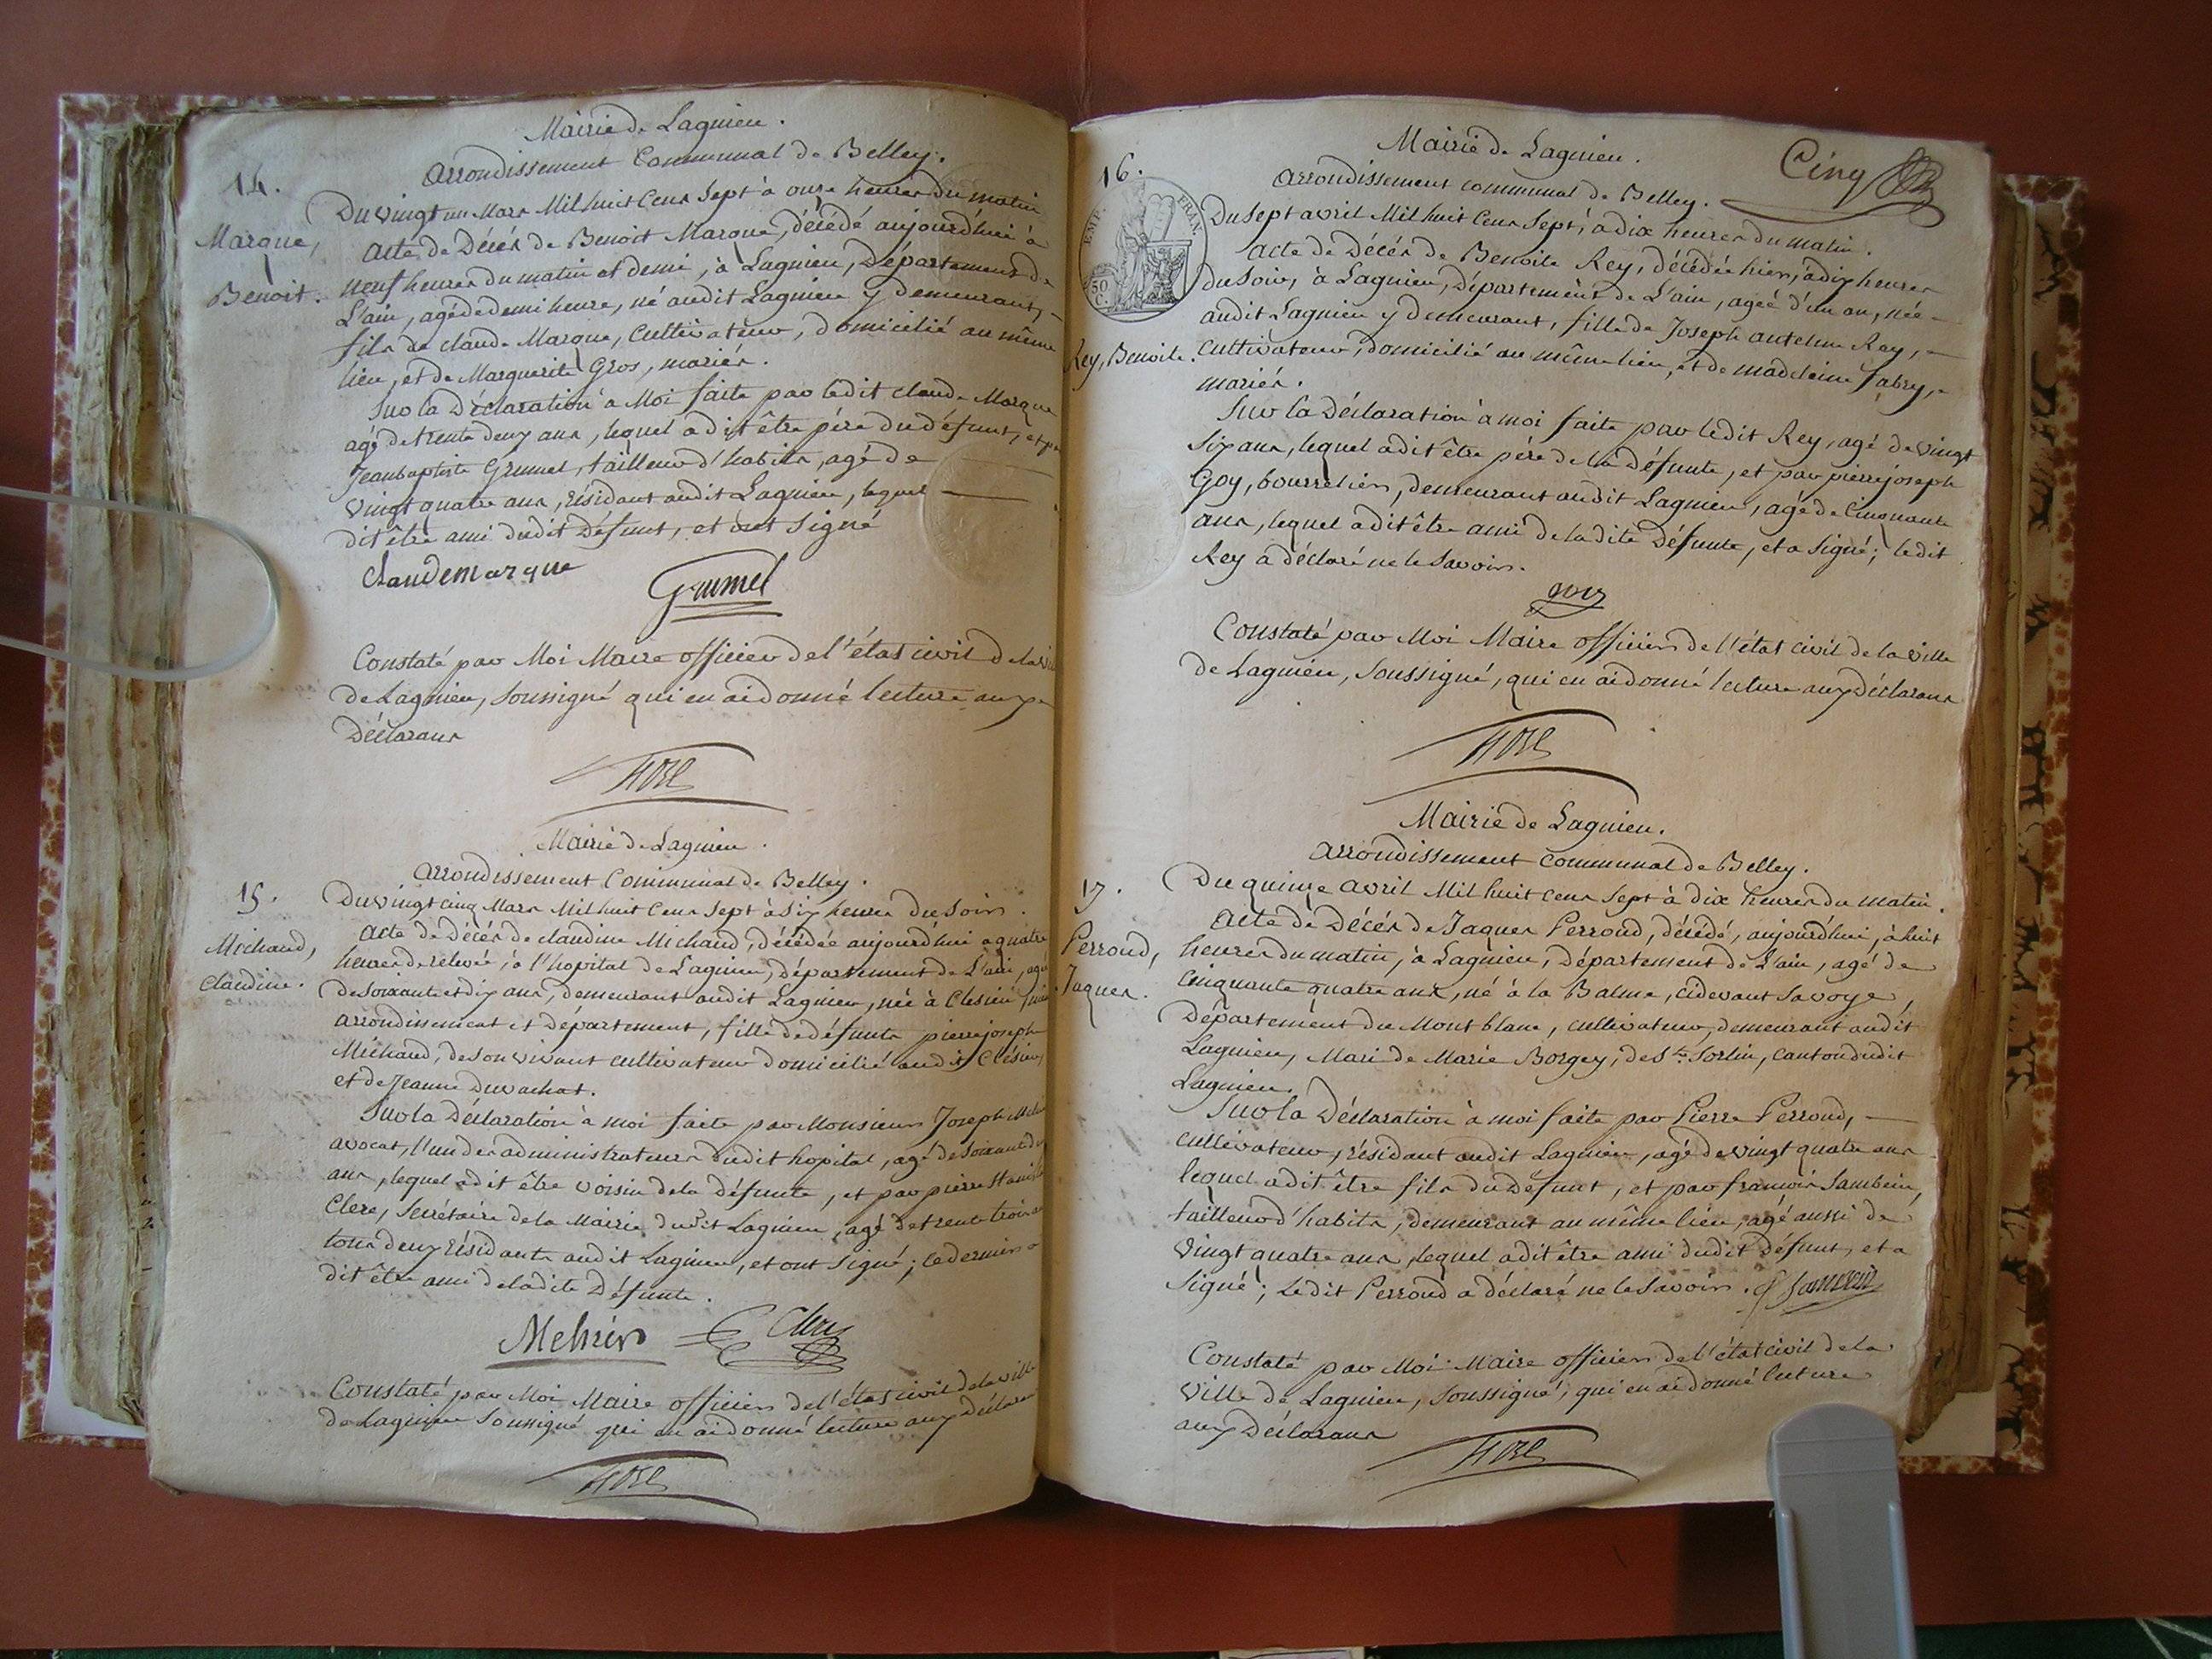 Mairie de Lagnieu.
Arrondissement Communal de Belley.
14.
Du vingt un Mars Mil huit Cens Sept à onze heures du matin
Marque,
Acte de Décés de Benoit Marque, décédé aujourd'hui à
neuf heures du matin et demi, à Lagnieu, Département de
Benoit.
L'ain, agé de demi heure, né audit Lagnieu y demeurant,
fils de claude Marque, Cultivateur, domicilié au même
lieu, et de Marguerite Gros, mariés.
Sur la Déclaration à Moi faite par ledit claude Marque
agé de trente deux ans, lequel a dit être pére du défunt, et par
Jean baptiste Grumel, tailleur d'habits, agé de
vingt quatre ans, résidant audit Lagnieu, lequel
dit être ami dudit Défunt, et ont Signé
claude marque
Grumel
Constaté par Moi Maire officier de l'état civil de la
de Lagnieu, soussigné qui en ai donné lecture aux
Déclarans
Mairie de Lagnieu.
Arrondissement Communal de Belley.
15.
Du vingt cinq Mars Mil huit Cens Sept à Six heures du Soir.
Michaud,
Acte de Décés de claudine Michaud, décédée aujourd'hui a quatre
heures de relevée, à l'hopital de Lagnieu, département de L'ain, agée
claudine.
de soixante et dix ans, demeurant audit Lagnieu, née à Clesieu,
arrondissement et département, fille de défunts pierre joseph
Michaud, de son vivant cultivateur domicilié audit Clésieu,
et de Jeanne Duvachat.
Sur la Déclaration à moi faite par Monsieur Joseph
avocat, l'un des administrateurs dudit hopital, agé de Soixante
ans, lequel a dit être voisin de la défunte, et par pierre
Clerc, Secrétaire de la Mairie dudit Lagnieu, agé de trente trois ans
tous deux résidants audit Lagnieu, et ont Signé; le dernier a
dit être ami de ladite Défunte.
Clerc
Constaté par Moi Maire officier de l'état civil de la ville
de Lagnieu Soussigné qui en ai donné lecture aux déclarans
Mairie de Lagnieu.
Cinq
Arrondissement communal de Belley.
16.
EMP. FRAN.
50 C.
Du Sept avril Mil huit Cens Sept, à dix heures du matin.
Acte de Décés de Benoite Rey, décédée hier, à dix heures
du Soir, à Lagnieu, Département de L'ain, ageé d'un an, née
audit Lagnieu y demeurant, fille de Joseph antelme Rey,
Rey, Benoite.
Cultivateur, domicilié au même lieu, et de madeleine fabry,
mariés.
Sur la Déclaration à moi faite par ledit Rey, agé de vingt
Six ans, lequel a dit être pére de la défunte, et par pierre joseph
Goy, bourrelier, demeurant audit Lagnieu, agé de Cinquante
ans, lequel a dit être ami de ladite Défunte, et a Signé; ledit
Rey a déclaré ne le Savoir.
goy
Constaté par Moi Maire officier de l'état civil de la ville
de Lagnieu, Soussigné, qui en ai donné lecture aux déclarans
Mairie de Lagnieu.
Arrondissement communal de Belley.
17.
Du quinze avril Mil huit cens Sept à dix heures du matin.
Perroud,
Acte de Décés de Jaques Perroud, décédé, aujourd'hui, à huit
heures du matin, à Lagnieu, Département de L'ain, agé de
Jaques.
Cinquante quatre ans, né à la Balme, cidevant Savoye,
Département du Mont blanc, cultivateur, demeurant audit
Lagnieu, Mari de Marie Borgey, de St. Sorlin, canton dudit
Lagnieu.
Sur la Déclaration à moi faite par Pierre Perroud,
cultivateur, résidant audit Lagnieu, agé de vingt quatre ans
lequel a dit être fils du Défunt, et par francois Sambein,
tailleur d'habits, demeurant au même lieu, agé aussi de
vingt quatre ans, lequel a dit être ami dudit Défunt, et a
Signé; ledit Perroud a déclaré ne le Savoir.
Constaté par Moi Maire officier de l'état civil de la
Ville de Lagnieu, Soussigné, qui en ai donné lecture
aux Déclarans